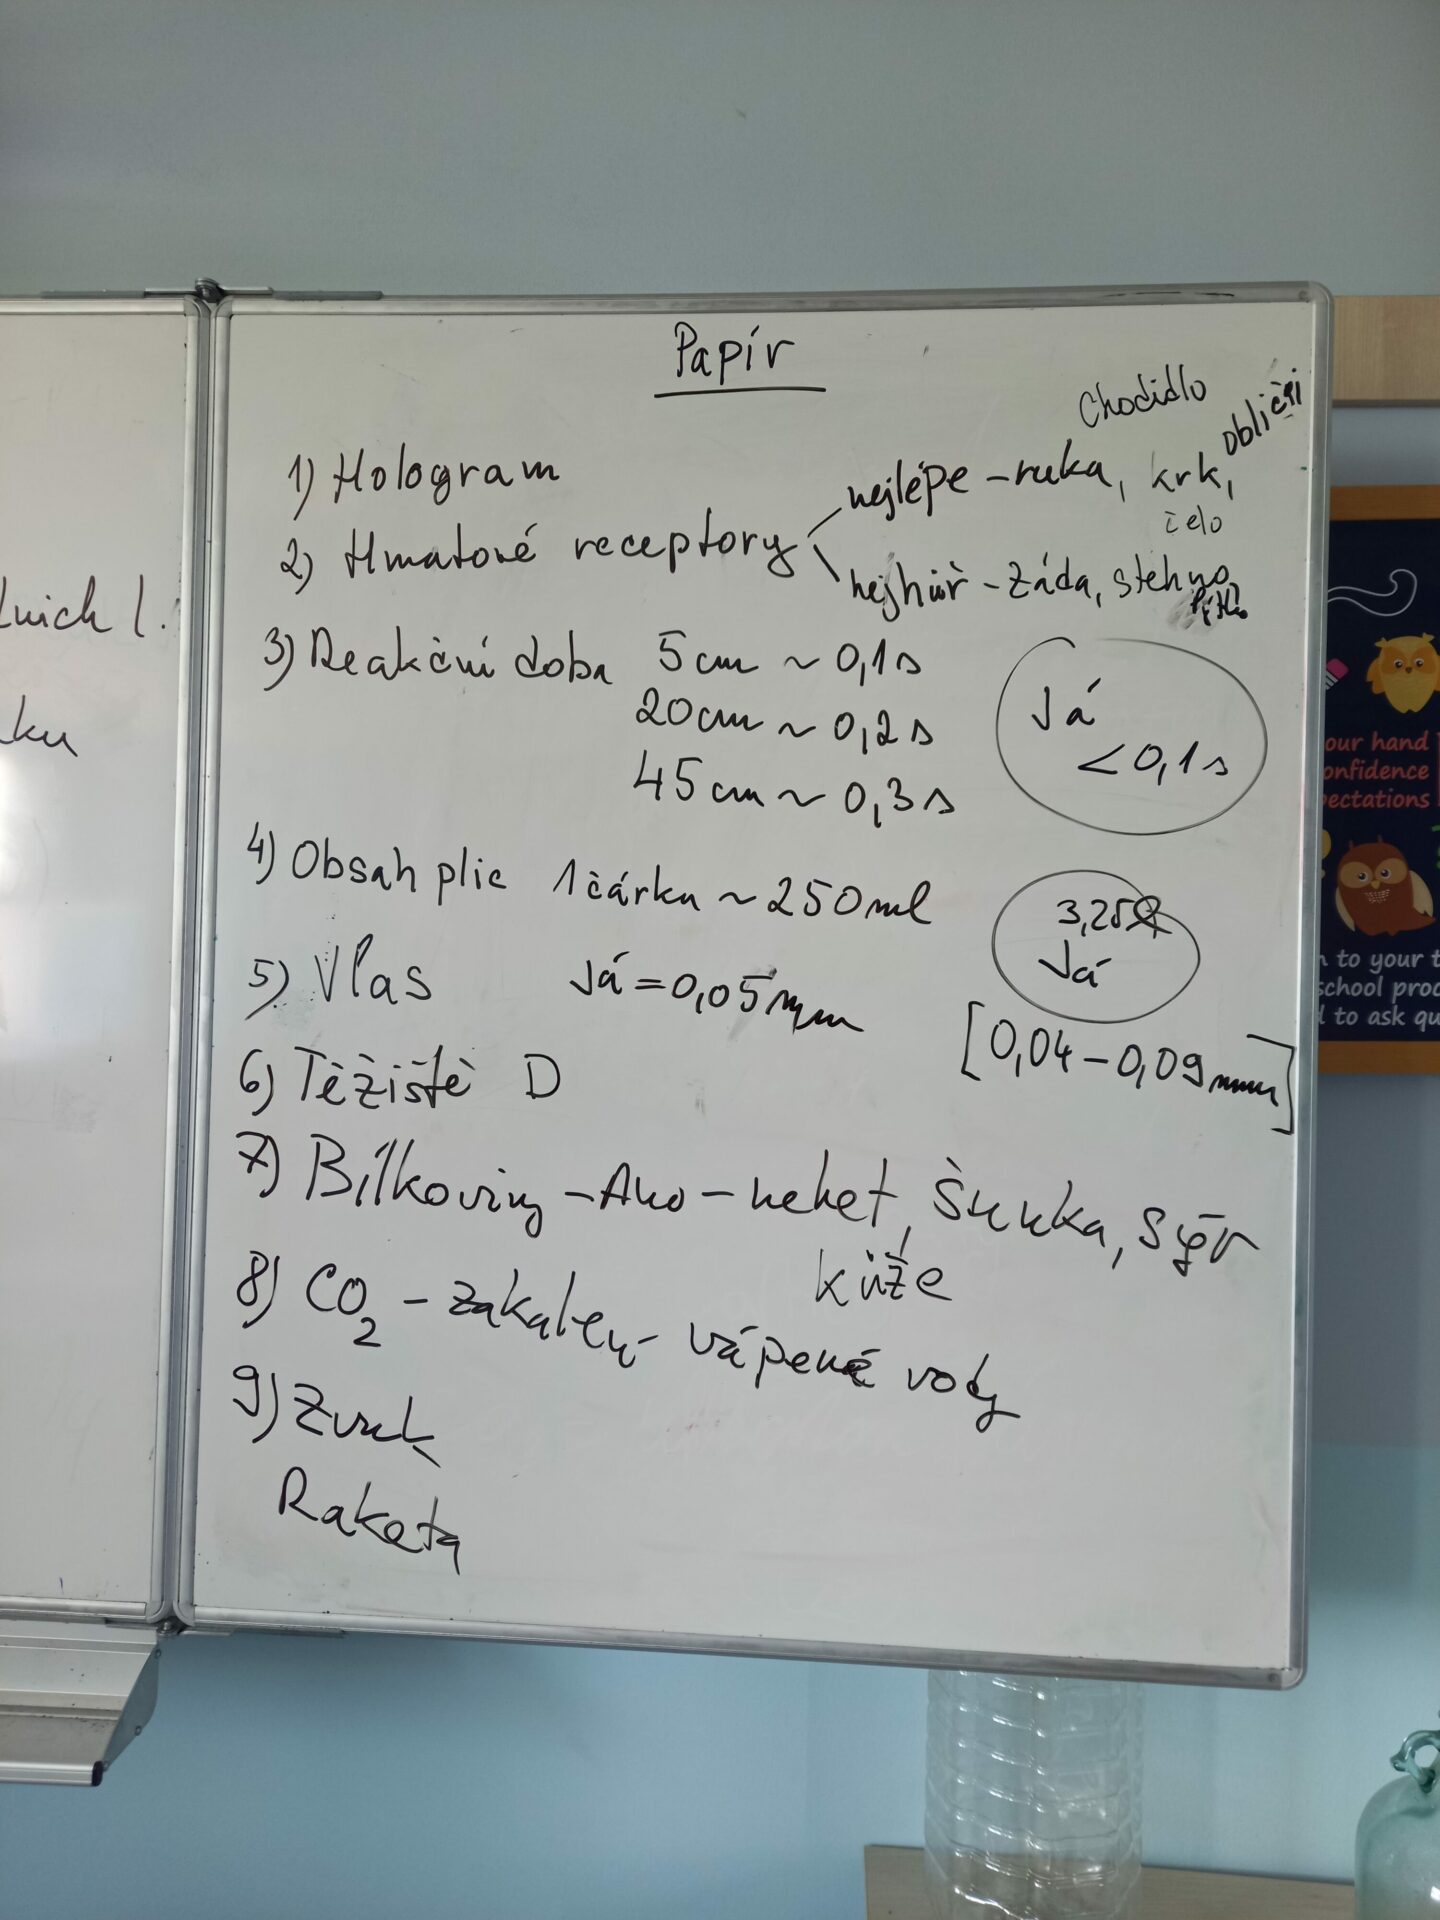 Papír
1) Hologram
2) Hmatové receptory
nejlépe - ruka, krk, obličej
Chodidlo
čelo
nejhůř - Záda, stehno,
3) Reakční doba 5 cm ~ 0,1 s
20 cm ~ 0,2 s
45 cm ~ 0,3 s
Já
< 0,1 s
4) Obsah plic 1 čárka ~ 250 ml
3,25 l
Já
5) Vlas Já = 0,05 mm
[0,04 - 0,09 mm]
6) Těžiště D
7) Bílkoviny - Ano - nehet, Šunka, Sýr
kůže
8) CO2 - zakalení vápené vody
9) Zvuk
Raketa
our hand
onfidence
pectations
to your
school proc
to ask qu